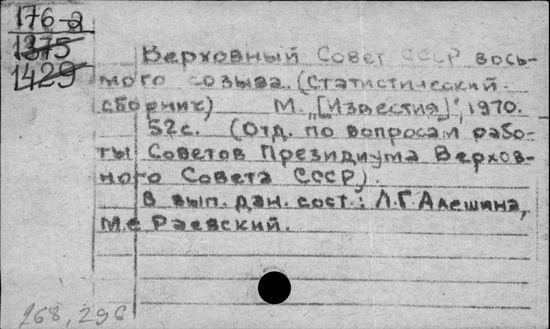 176-а
1375
1429
Верховный Совет СССР вось-
мого созыва. (Статистический
сборник) М. „[Известия]", 1970.
52с. (Отд. по вопросам рабо-
ты Советов Президиума Верхов-
ного Совета СССР).
В вып. дан. сост.: Л.Г. Алешина,
М.С Раевский.
168, 296